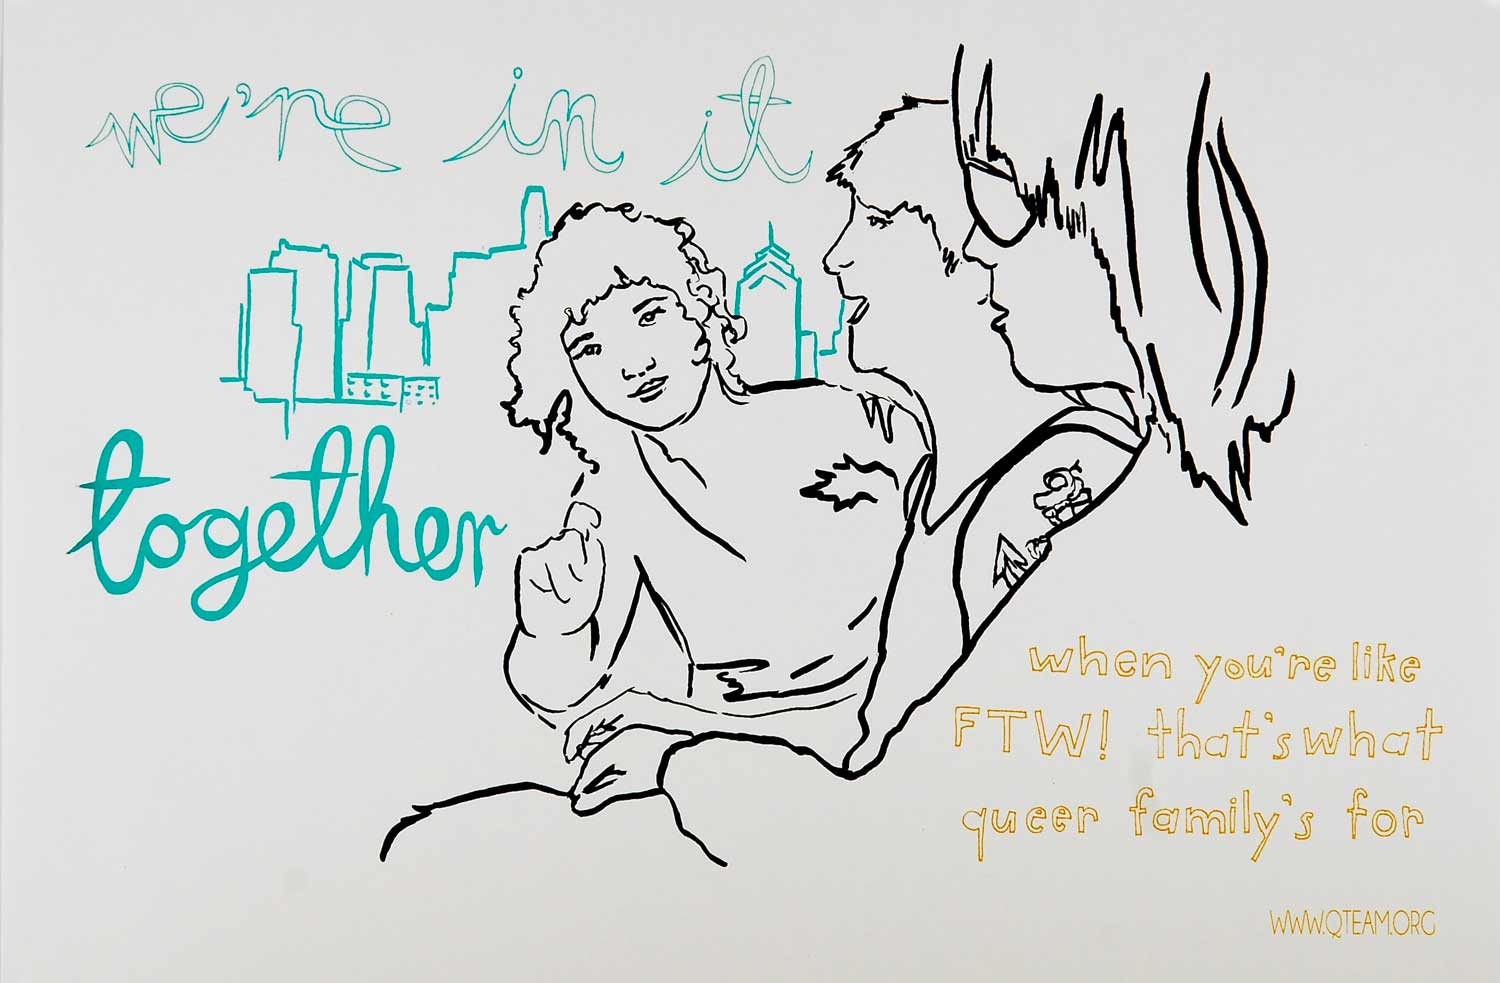 we're in it
together
when you're like
FTW! that's what
queer family's for
WWW.QTEAM.ORG